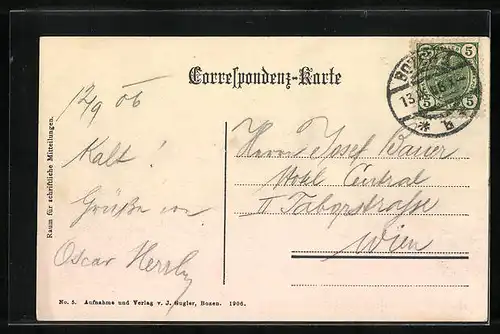 Correspondenz-Karte
5 5
5 5
BO
13. 06
* b
12/9 06
Kalt!
Grüße von
Oscar
Herrn Josef Bauer
Hotel Central
II Taborstraße
Wien
Raum für schriftliche Mitteilungen.
No. 5. Aufnahme und Verlag v. J. Gugler, Bozen. 1906.